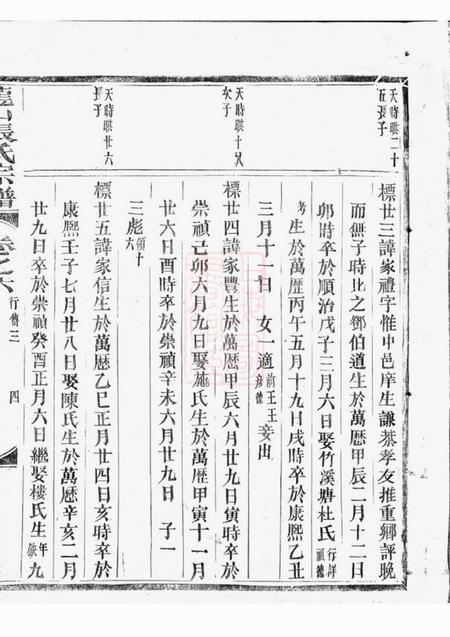 天時聯二十
五長子
標廿三諱家禮字惟中邑庠生謙恭孝友推重鄉評晚
而無子時比之鄧伯道生於萬歷甲辰二月十二日
卯時卒於順治戊子三月六日娶竹溪塘杜氏行詳祖德
考生於萬歷丙午五月十九日戌時卒於康熙乙丑
三月十一日 女一適前王王彥德 妾出
天時聯十八
次子
標廿四諱家豐生於萬歷甲辰六月廿九日寅時卒於
崇禎己卯六月九日娶施氏生於萬歷甲寅十一月
廿六日酉時卒於崇禎辛未六月廿九日 子一
三彪領十六
天時聯廿六
長子
標廿五諱家信生於萬歷乙巳正月廿四日亥時卒於
康熙壬子七月廿八日娶陳氏生於萬歷辛亥二月
廿九日卒於崇禎癸酉正月六日繼娶樓氏生年缺九
張氏宗譜
卷之六
行傳三
四